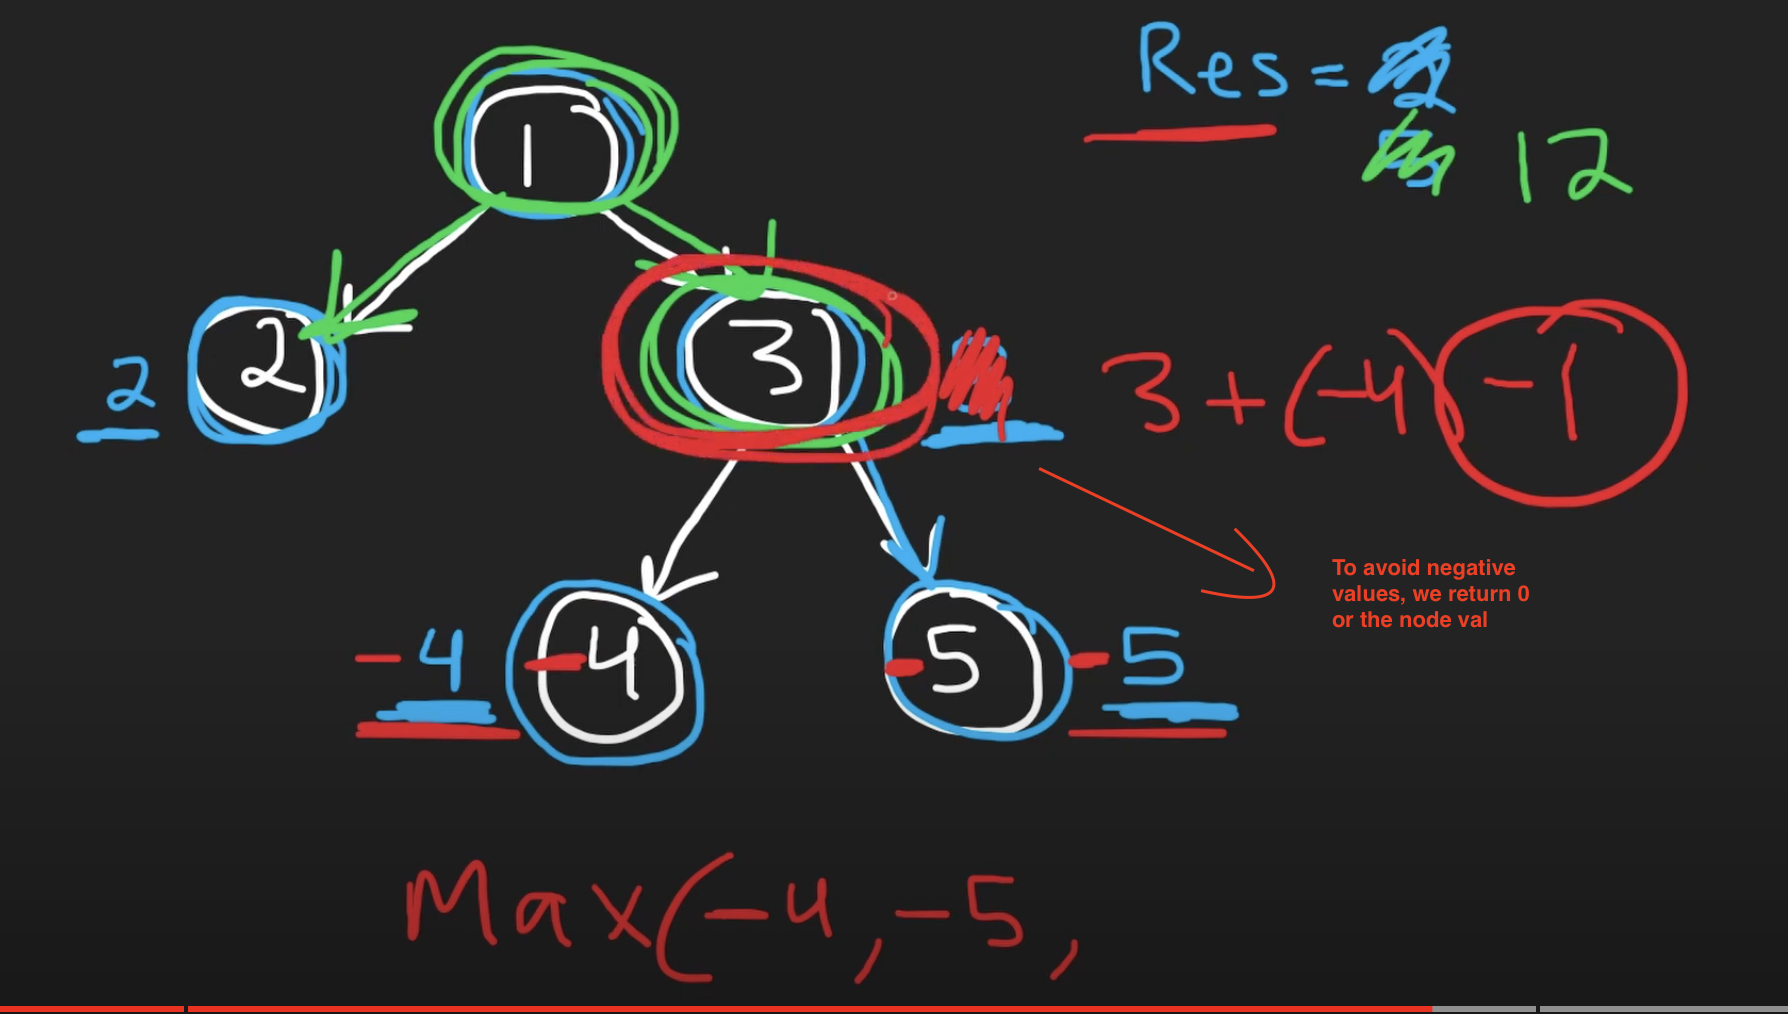 Res = 2
12
1
2
2
3
3 + (-4) -1
To avoid negative
values, we return 0
or the node val
-4
-4
-5
-5
Max(-4, -5,